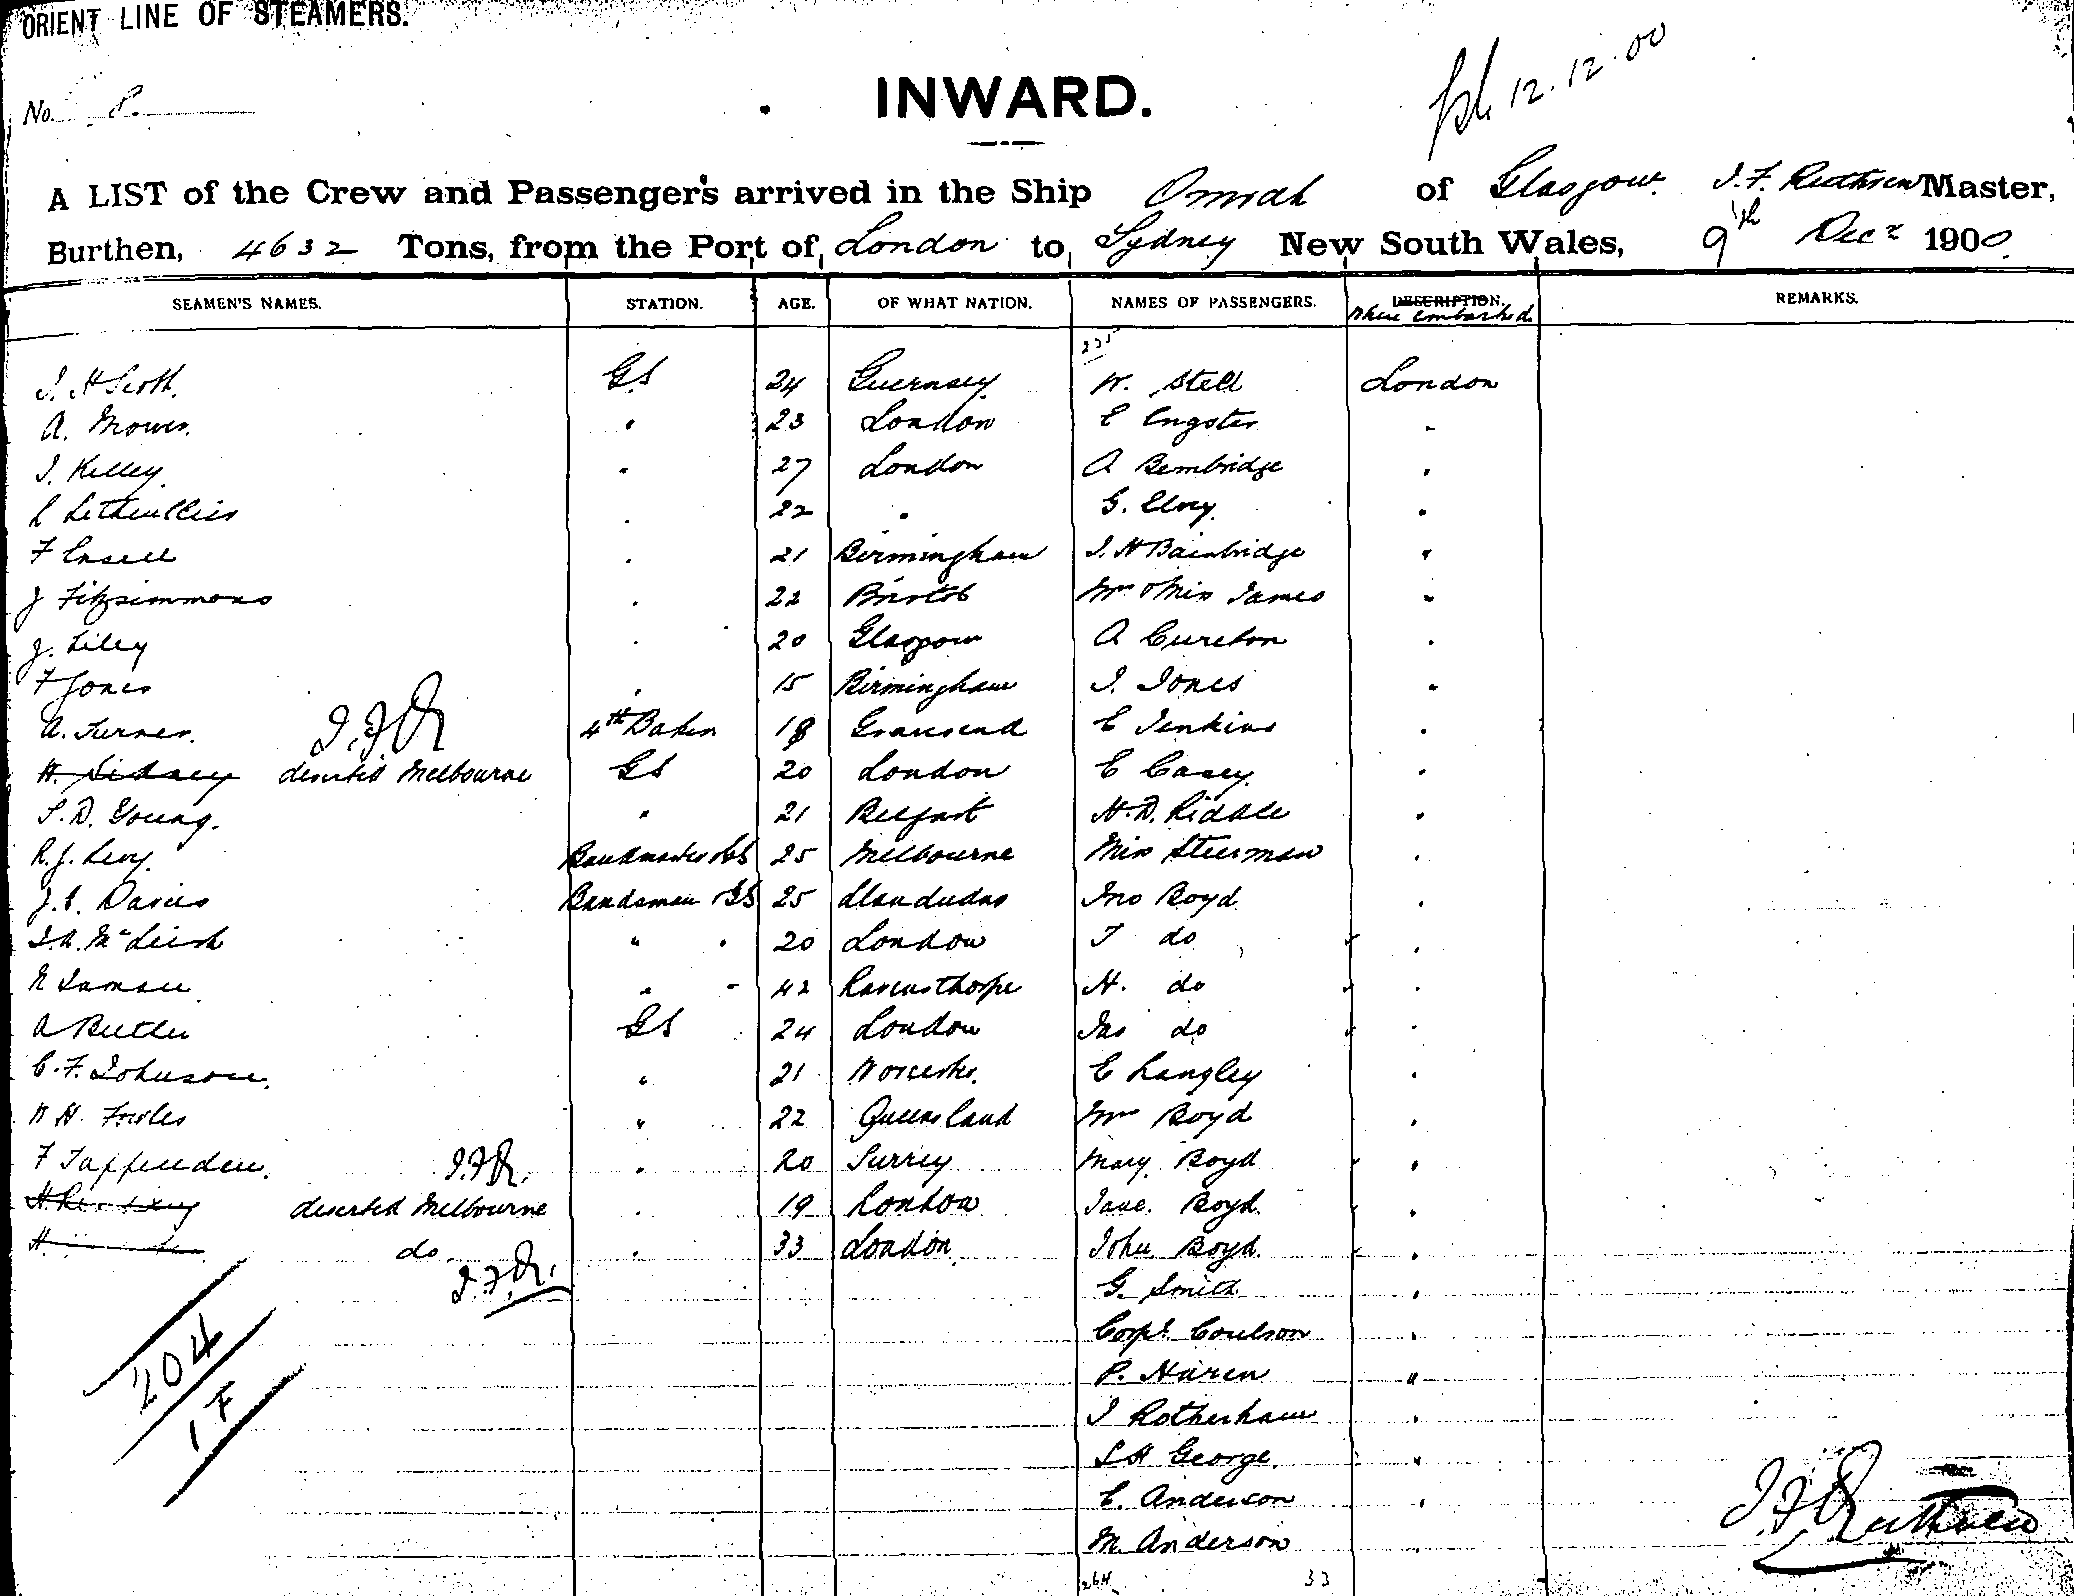 ORIENT LINE OF STEAMERS.
12.12.00
No. 8.
INWARD.
A LIST of the Crew and Passengers arrived in the Ship Omrah of Glasgow. J. F. Ruthven Master,
Burthen, 4632 Tons, from the Port of London to Sydney New South Wales, 9th Decr 1900.
SEAMEN'S NAMES. STATION. AGE. OF WHAT NATION. NAMES OF PASSENGERS. DESCRIPTION. Where Embarked REMARKS.
235
J. H Scott. GS 24 Guernsey W. Stell London
A. Mower. " 23 London E Engster "
J. Kelley. " 27 London A Bembridge "
L Lethieullier " 22 " G. Elvey. "
F " 21 Birmingham J. H Bainbridge "
J Fitzsimmons " 22 Bristol Mr & Miss James "
J. Liley " 20 Glasgow A Cureton "
F Jones " 15 Birmingham J. Jones "
A. Turner. J.F.R 4th Baker 18 Gravesend E Jenkins "
H. Sidney deserted Melbourne GS 20 London E Casey. "
S. D. Young. " 21 Belfast H. D. Riddle "
R. J. Levy. Bandmaster GS 25 Melbourne Miss Steerman "
J. E. Davies Bandsman GS 25 Llandudno Jno Boyd "
J. A. McLeish " " 20 London T do "
" " 42 Ravensthorpe H. do "
A Butler GS 24 London Jas do "
C. F. Johnson. " 21 Worcester. E Langley "
W H. Fowles " 22 Queensland Mrs Boyd "
F Tappenden. J.F.R. " 20 Surrey Mary Boyd "
H. deserted Melbourne " 19 London Jane. Boyd. "
H. do J.F.R. " 33 London John Boyd. "
G. Smith "
204
Corpl. Coulson "
17
P. Haren "
J Rotherham "
S H George. "
E. Anderson "
J F Ruthven
M. Anderson "
264 33